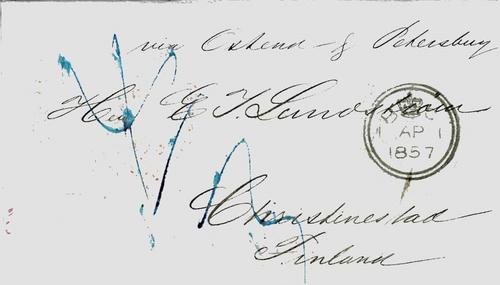 via Ostend & Petersburg
Herr C F Lundström
AP
1 1
1857
Christinestad
Finland